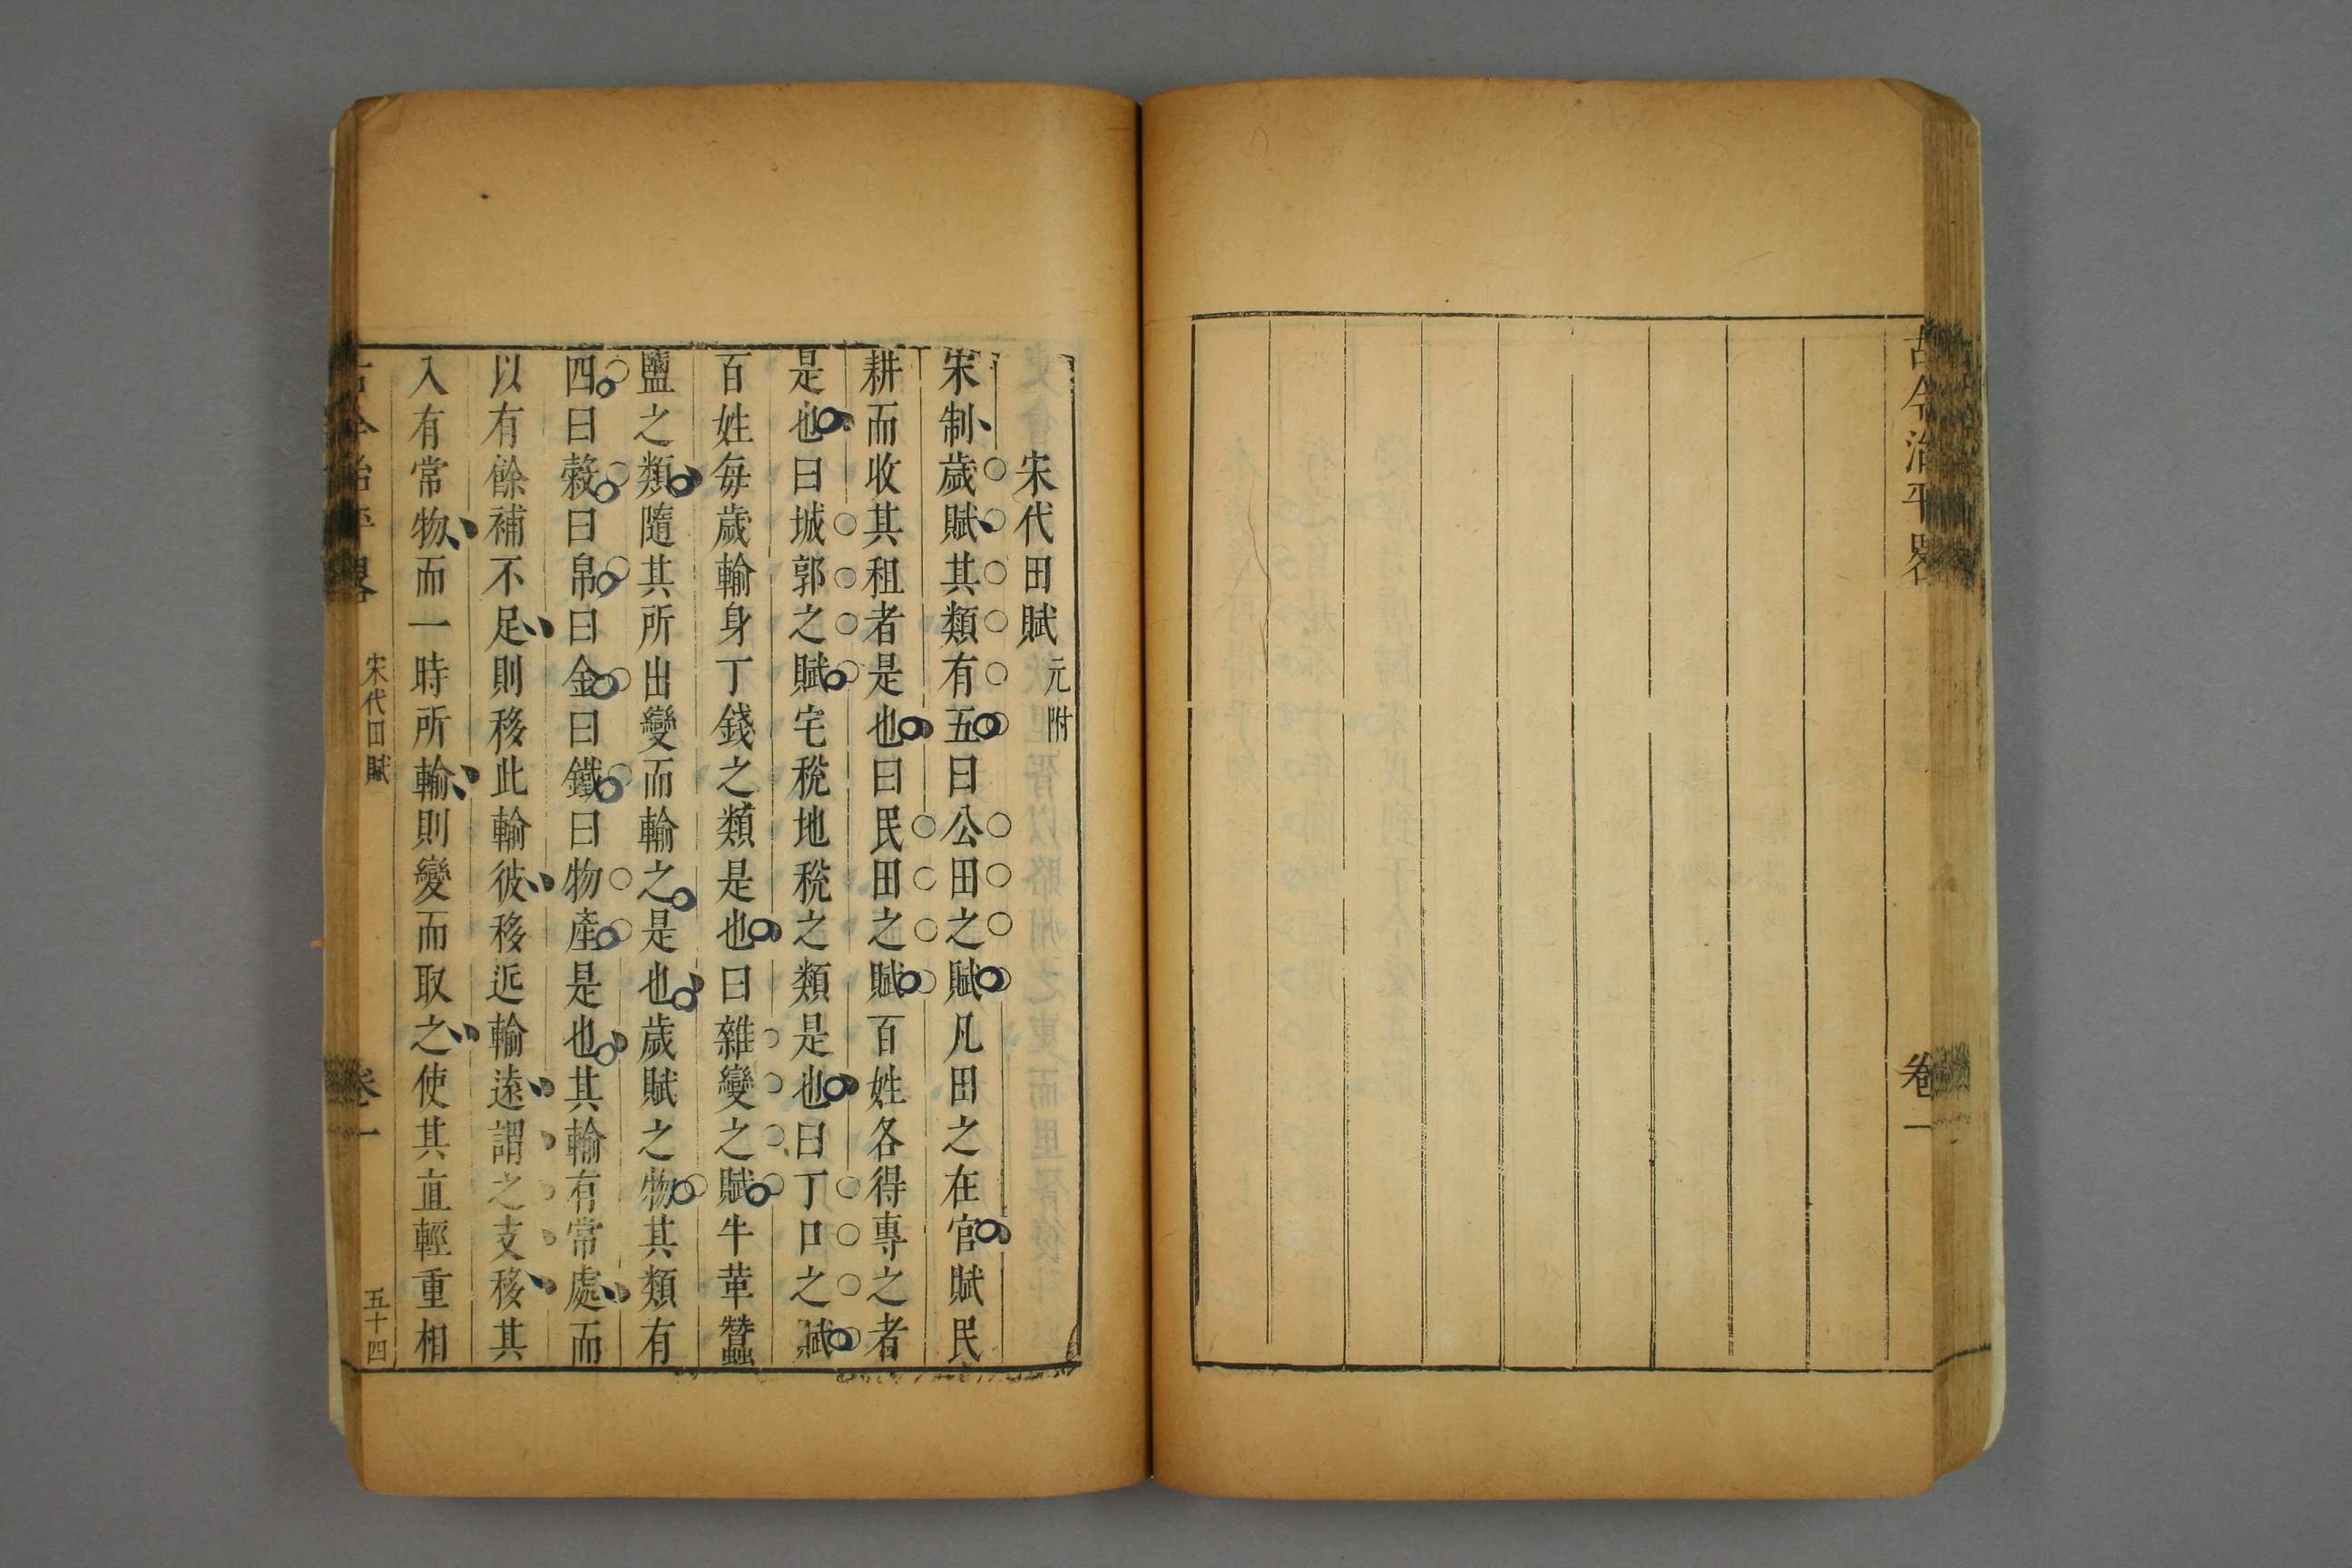 古今治平畧
卷一
宋代田賦 元附
宋制歲賦其類有五曰公田之賦凡田之在官賦民
耕而收其租者是也曰民田之賦百姓各得專之者
是也曰城郭之賦宅稅地稅之類是也曰丁口之賦
百姓每歲輸身丁錢之類是也曰雜變之賦牛革蠶
鹽之類隨其所出變而輸之是也歲賦之物其類有
四曰榖曰帛曰金曰鐵曰物產是也其輸有常處而
以有餘補不足則移此輸彼移近輸遠謂之支移其
入有常物而一時所輸則變而取之使其直輕重相
古今治平畧
宋代田賦
卷一
五十四